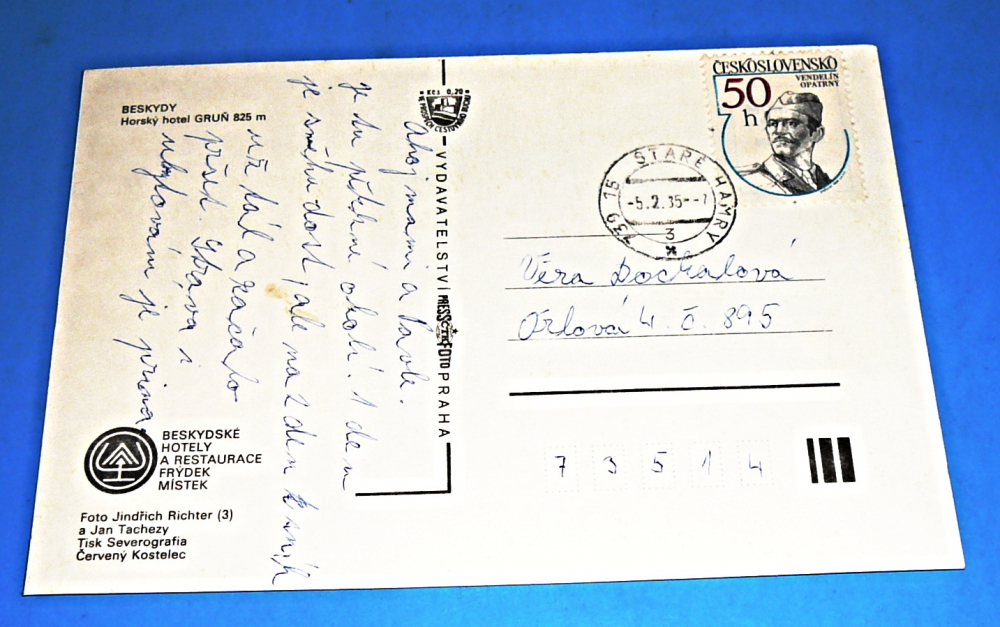 BESKYDY
Horský hotel GRUŇ 825 m
Ahoj mami a Pavle.
je tu pěkné okolí. 1 den
je sněhu dost, ale na 2 den sníh
už tál a začalo
pršet. Strava i
ubytování je prima.
BESKYDSKÉ
HOTELY
A RESTAURACE
FRÝDEK
MÍSTEK
Foto Jindřich Richter (3)
a Jan Tachezy
Tisk Severografia
Červený Kostelec
Kčs 0,20
VYDAVATELSTVÍ PRESSFOTO PRAHA
ČESKOSLOVENSKO
50
h
VENDELÍN
OPATRNÝ
739 15 STARÉ HAMRY
-5.2.85--7
3
Věra Dočkalová
Orlová 4. č. 895
7 3 5 1 4